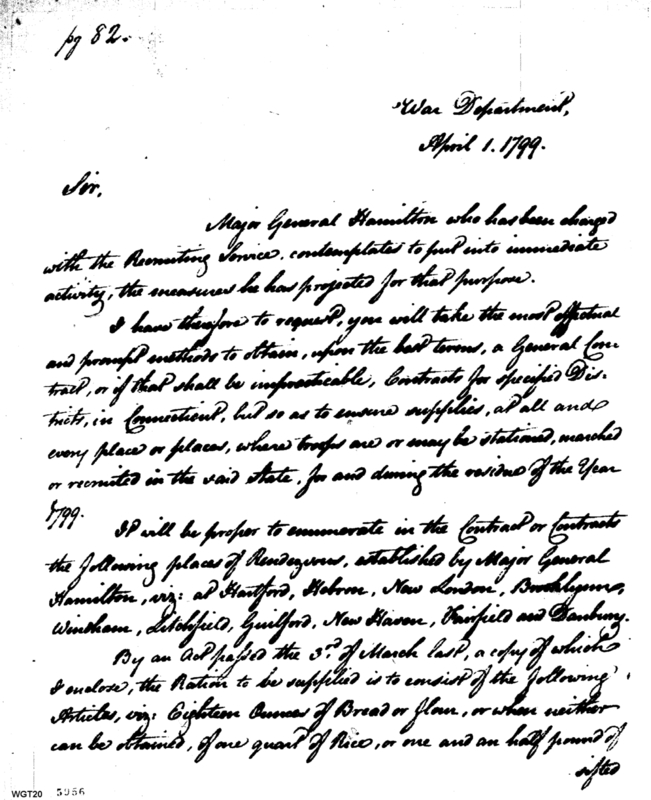 pg 82.
War Department,
April 1. 1799.
Sir,
Major General Hamilton who has been charged
with the Recruiting Service, contemplates to put into immediate
activity, the measures he has projected for that purpose.
I have therefore to request, you will take the most effectual
and prompt methods to obtain, upon the best terms, a General Con-
tract, or if that shall be impracticable, Contracts for specified Dis-
tricts, in Connecticut, but so as to ensure supplies, at all and
every place or places, where troops are or may be stationed, marched
or recruited in the said State, for and during the residue of the Year
1799.
It will be proper to enumerate in the Contract or Contracts
the following places of Rendezvous, established by Major General
Hamilton, viz: at Hartford, Hebron, New London, Brooklyne,
Windham, Litchfield, Guilford, New Haven, Fairfield and Danbury.
By an Act passed the 3rd of March last, a copy of which
I enclose, the Ration to be supplied is to consist of the following
Articles, viz: Eighteen Ounces of Bread or flour, or when neither
can be obtained, of one quart of Rice, or one and an half pound of
sifted
WGT20 5956